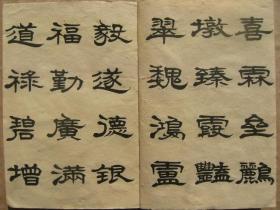 喜霖鸝
墩臻霞豔
翠魏鴻盧
毅遂德銀
福勤廣滿
道祿碧增